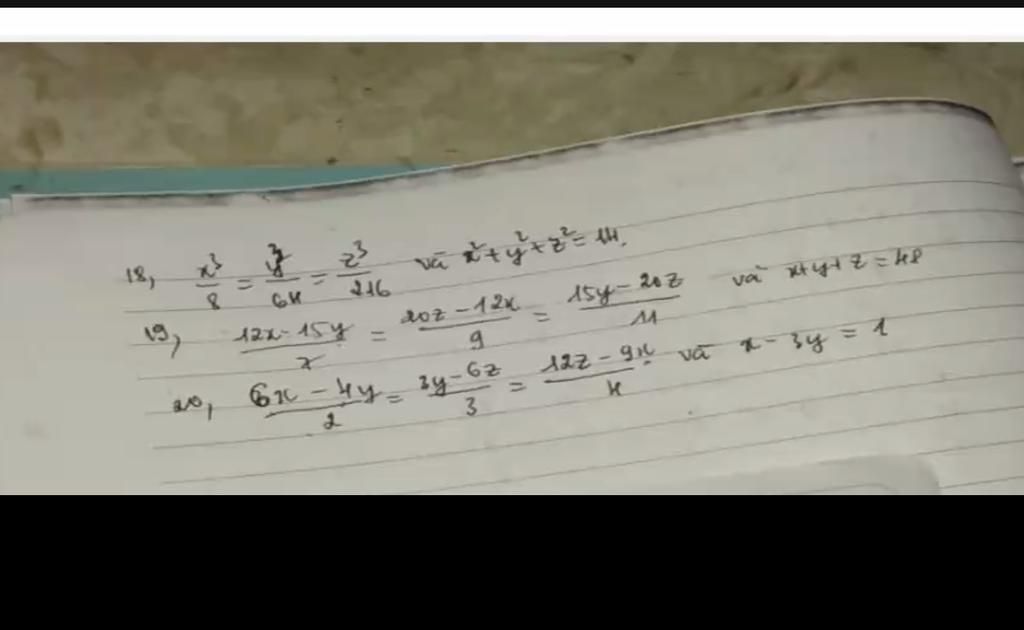 18, x³/8 = y³/64 = z³/216 và x² + y² + z² = 14.
19, 12x - 15y/7 = 20z - 12x/9 = 15y - 20z/11 và x + y + z = 48
20, 6x - 4y/2 = 3y - 6z/3 = 12z - 9x/4 và x - 3y = 1